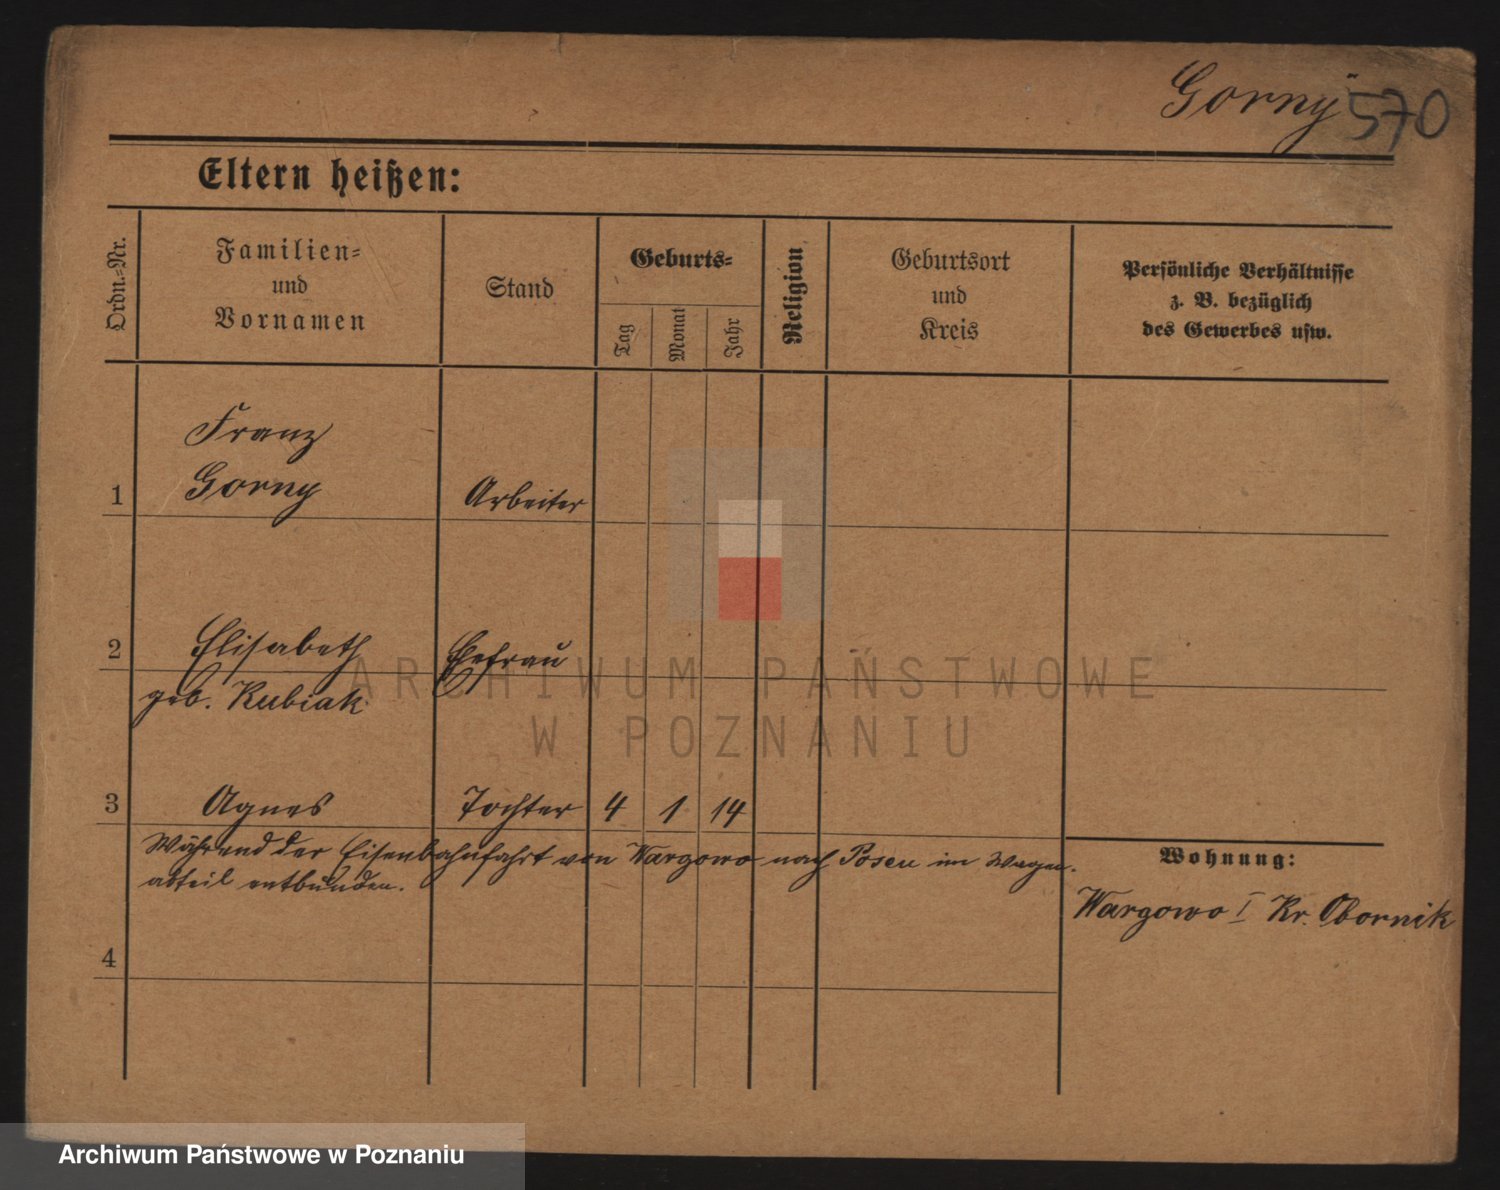 Gorny 570
Eltern heißen:
Ordn.-Nr.
Familien-
und
Vornamen
Stand
Geburts-
Tag
Monat
Jahr
Religion
Geburtsort
und
Kreis
Persönliche Verhältnisse
z. B. bezüglich
des Gewerbes usw.
Franz
1 Gorny Arbeiter
2 Elisabeth Ehefrau
geb. Kubiak
3 Agnes Tochter 4 1 14
Während der Eisenbahnfahrt von Wargowo nach Posen im Wagen-
abteil entbunden.
Wohnung:
Wargowo I Kr. Obornik
4
ARCHIWUM PAŃSTWOWE
W POZNANIU
Archiwum Państwowe w Poznaniu